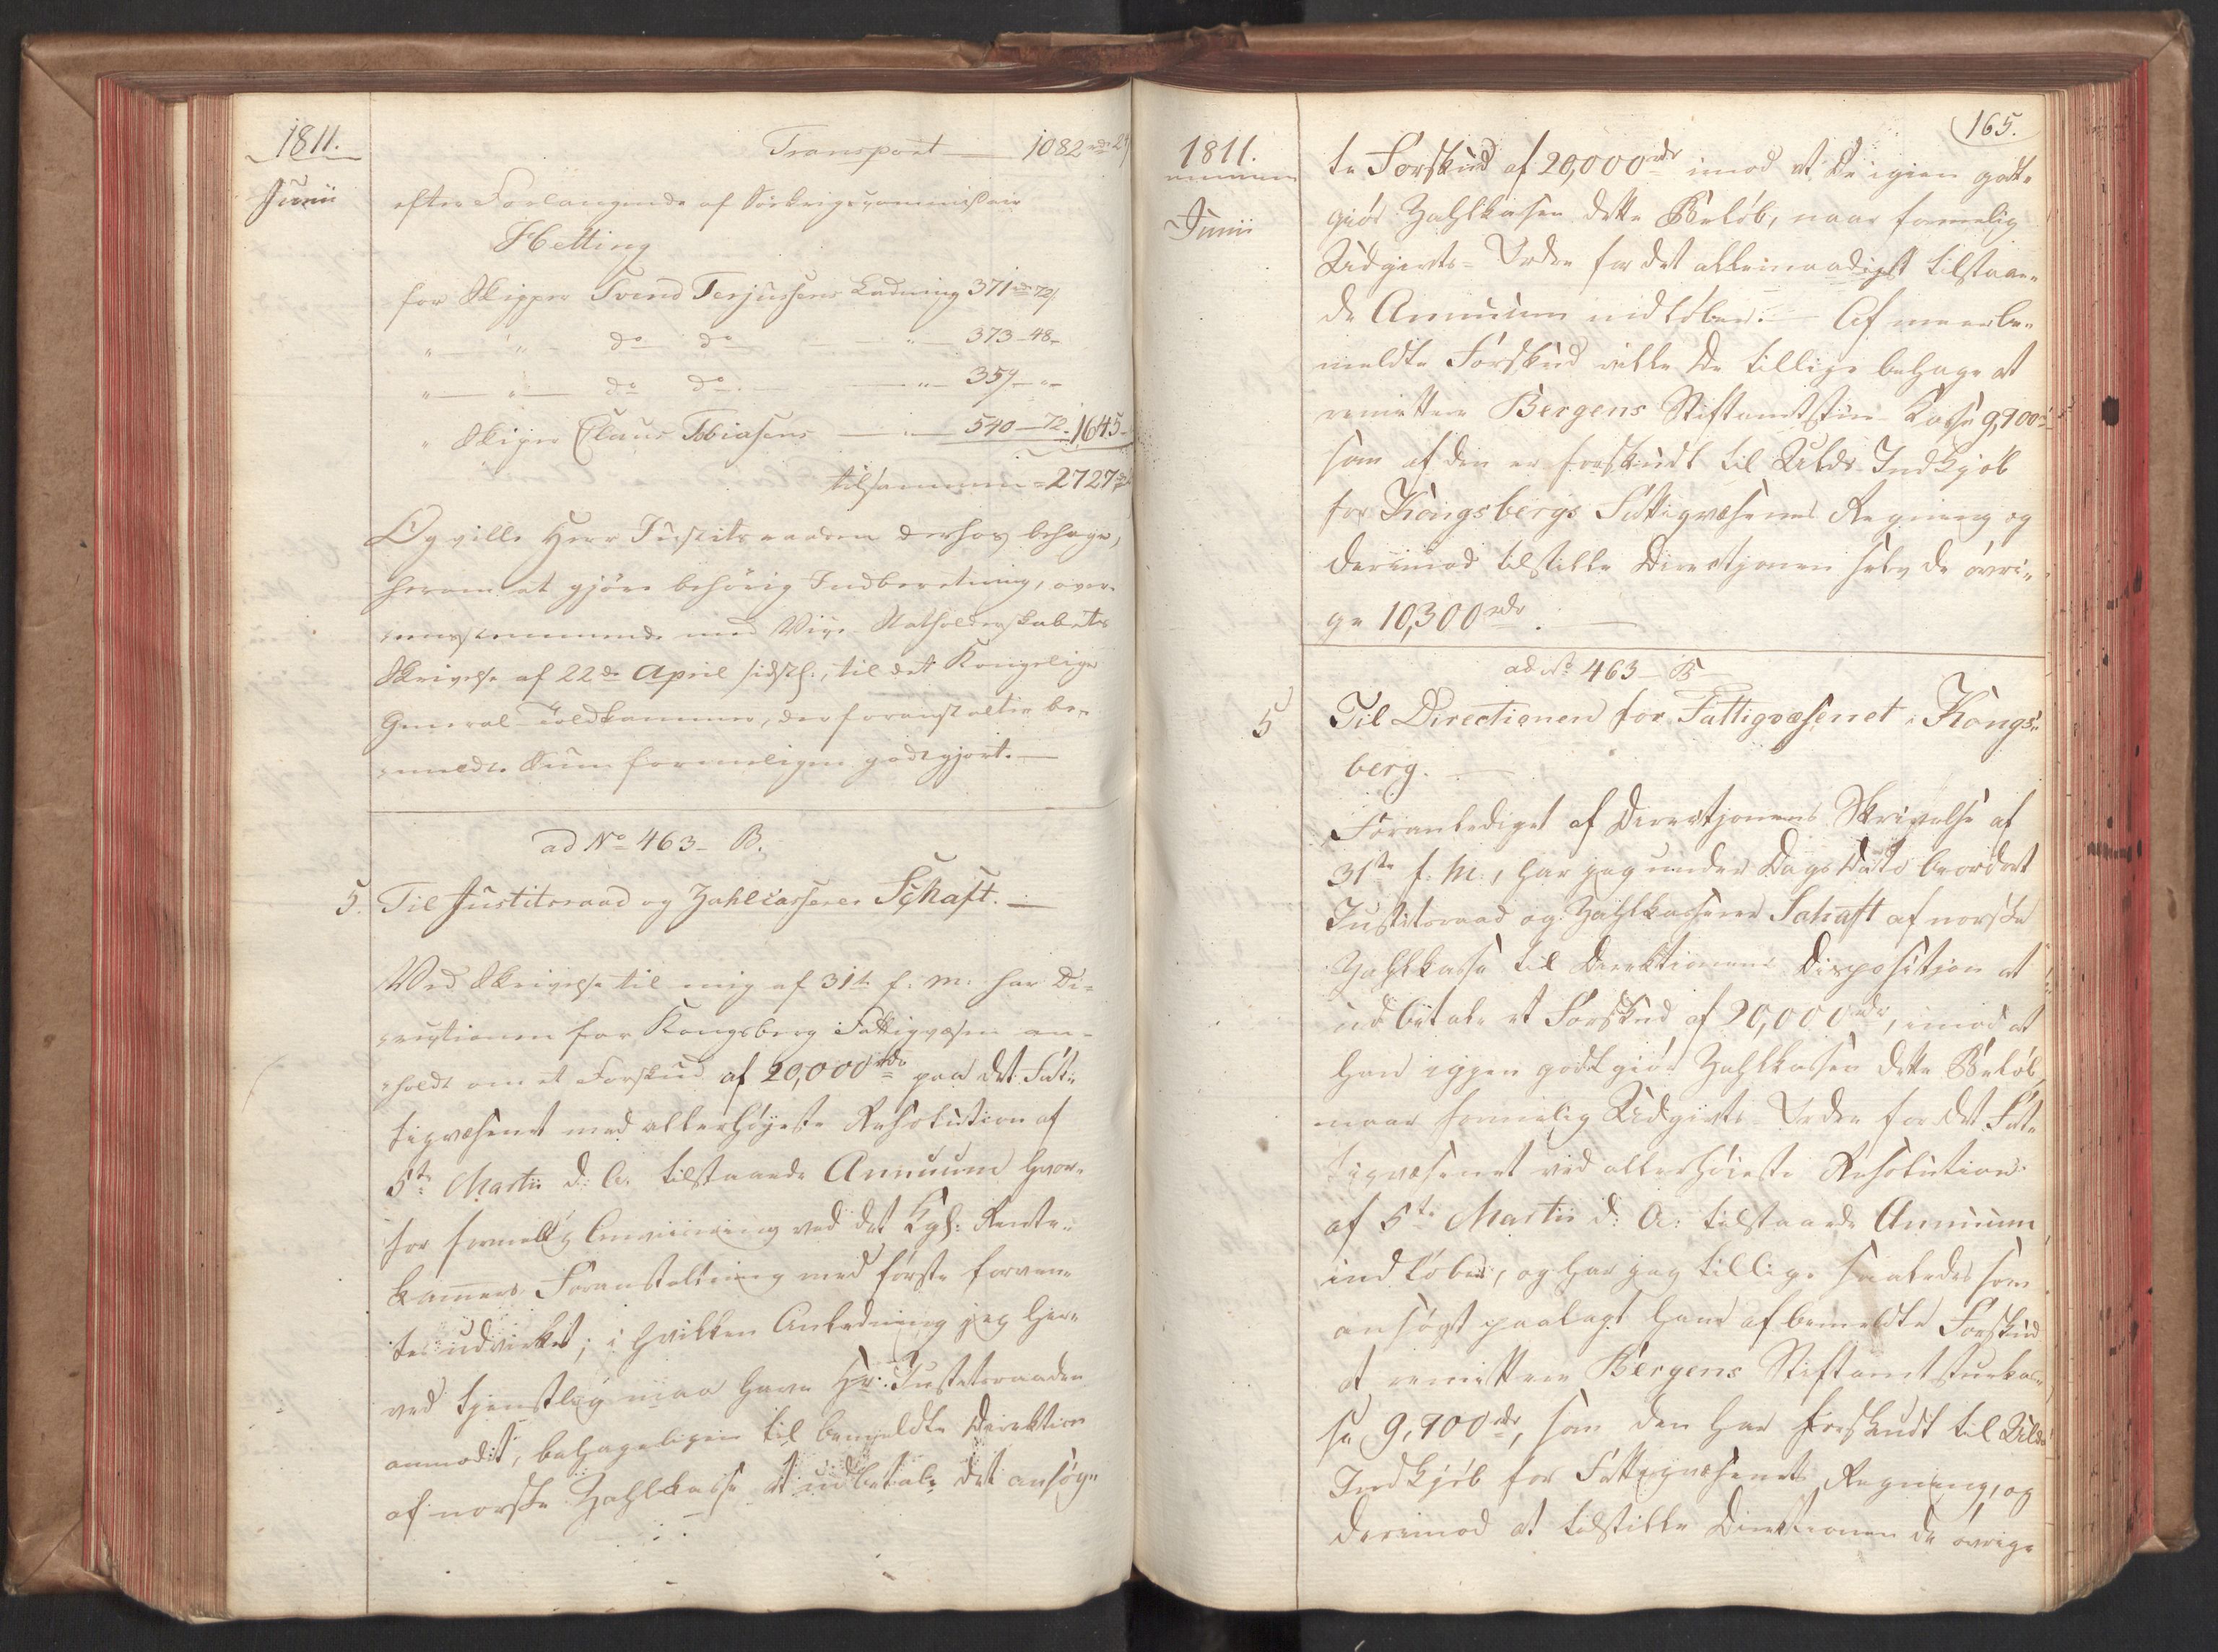 1811.
Junii
Transport — 1082 rdr 24
efter Forlangende af Sökrigscommissair
Hetting
for Skipper Svend Terjusens Ladning 371 rdr 72
" — " — do do — " — 373 - 48 -
" — " — do do — " — 359 - " -
" Skiper Claus Tobiasens — " — 540 - 72 - 1645 -
tilsammen = 2727 rdr
Og ville Herr Justitsraaden derhos behage,
herom at gjöre behörig Indberetning, over-
eensstemmende med Vice-Statholderskabets
Skrivelse af 22de April sidstl:, til det Kongelige
General-Toldkammer, der foranstalter be-
meldte Sum formeligen godtgjort. —
ad No 463 - B.
5. Til Justitsraad og Zahlcasserer Schaft. —
Ved Skrivelse til mig af 31te f: M: har Di-
rectionen for Kongsberg Fattigvæsen an-
holdt om et Forskud af 20,000 rdr paa det Fat-
tigvæsenet med allerhöyeste Resolution af
5te Martii d: A: tilstaaede Annuum hvor-
for formelig Anviisning ved det Kgl: Rente-
kammers Foranstaltning med förste forven-
tes udvirket; i hvilken Anledning jeg her-
ved tjenstlig maa have Hr: Justitsraaden
anmodet, behageligen til bemeldte Direktion
af norske Zahlkasse at udbetale det ansög-
165.
1811.
Junii
te Forskud af 20,000 rdr imod at De igien godt-
giör Zahlkassen dette Belöb, naar formelig
Udgivts-Ordre for det allernaadigst tilstaae-
de Annuum indlöber. — Af meerbe-
meldte Forskud ville De tillige behage at
remittere Bergens Stiftamtstue Kasse 9,700 rdr
som af den er forskudt til Ulds-Indkjöb
for Kongsbergs Fattigvæsenes Regning og
derimod tilstille Direktjonen selv de övri-
ge 10,300 rdr. —
ad No 463 - B
5 Til Directionen for Fattigvæsenet i Kongs-
berg. —
Foranlediget af Direktjonens Skrivelse af
31te f. M:, har jeg under Dags Dato beordret
Justitsraad og Zahlkasserer Schaft af norske
Zahlkasse til Direktionens Disposition at
udbetale et Forskud af 20,000 rdr, imod at
han igjen godtgiör Zahlkassen dette Belöb,
naar formelig Udgivts-Ordre for det Fat-
tigvæsenet ved allerhöieste Resolution
af 5te Martii d: A: tilstaaede Annuum
indlöber, og har jeg tillige saaledes som
ansögt paalagt ham af bemeldte Forskud
at remittere Bergens Stiftamtstuekas-
se 9,700 rdr, som den har forskudt til Ulds
Indkjöb for Fattigvæsenets Regning, og
derimod at tilstille Direktionen de övrige